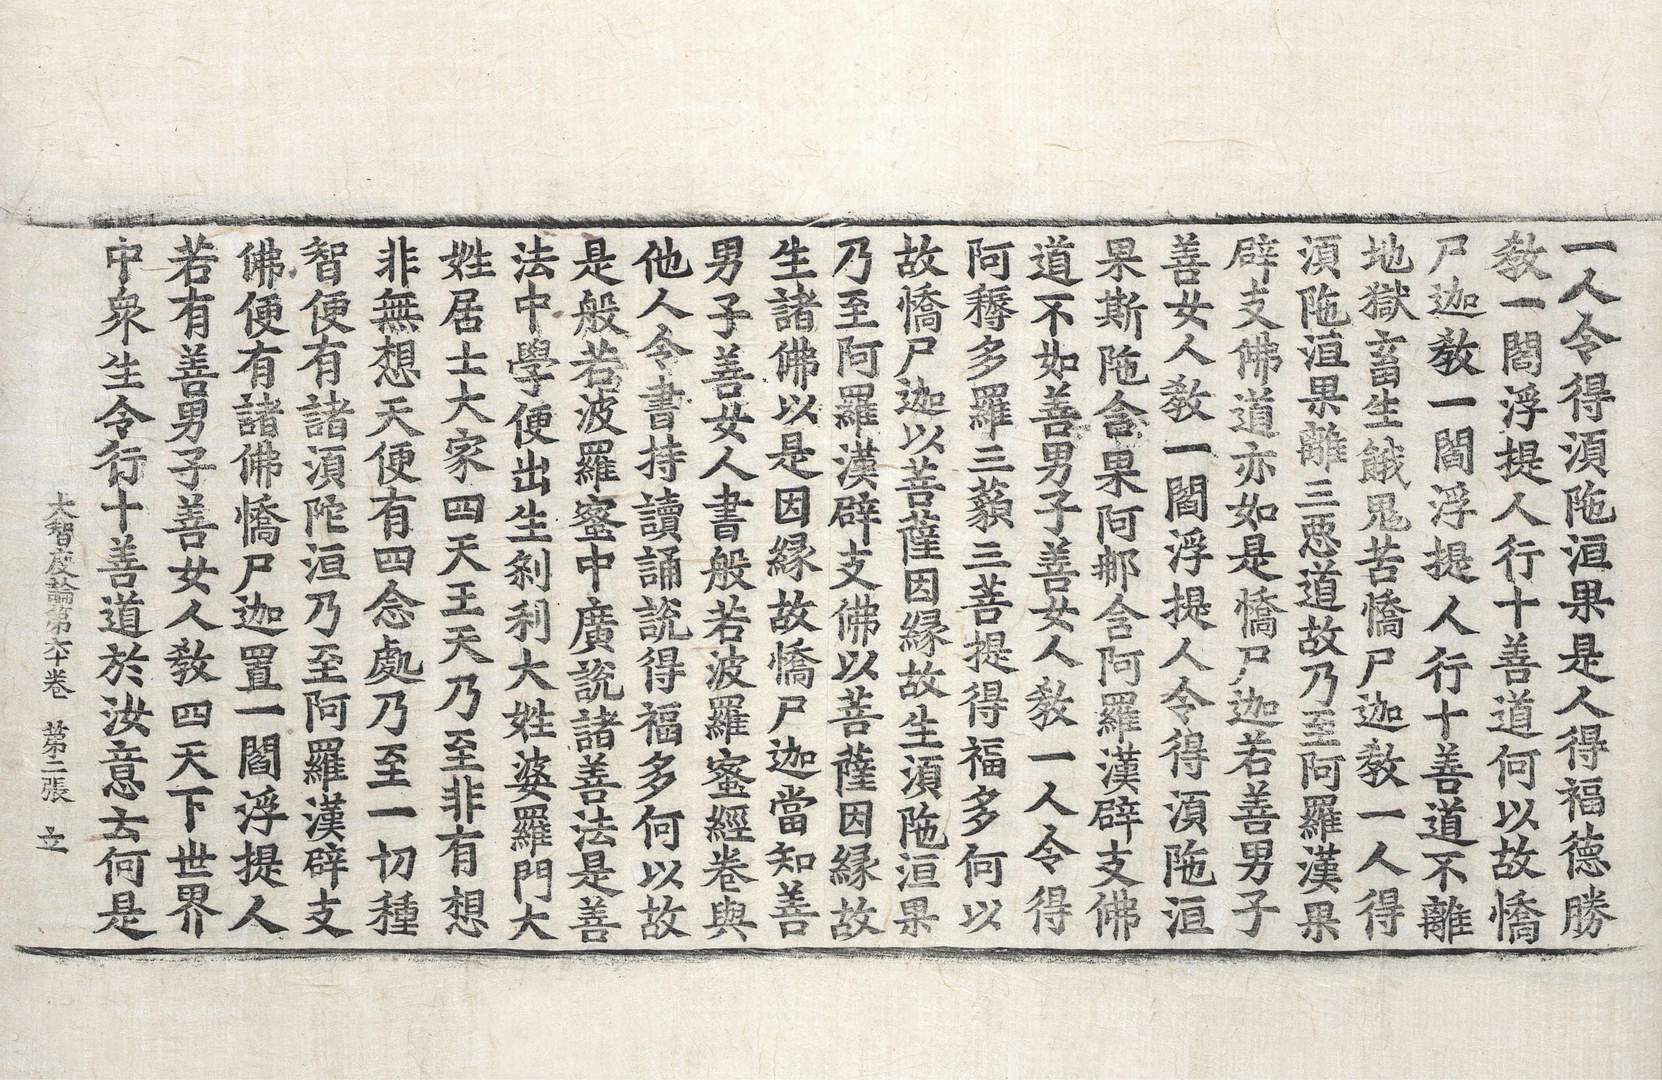 一人令得湏陁洹果是人得福德勝
敎一閻浮提人行十善道何以故憍
尸迦敎一閻浮提人行十善道不離
地獄畜生餓鬼苦憍尸迦敎一人得
湏陁洹果離三惡道故乃至阿羅漢果
辟支佛道亦如是憍尸迦若善男子
善女人敎一閻浮提人令得湏陁洹
果斯陁含果阿那含阿羅漢辟支佛
道不如善男子善女人敎一人令得
阿耨多羅三藐三菩提得福多何以
故憍尸迦以菩薩因緣故生湏陁洹果
乃至阿羅漢辟支佛以菩薩因緣故
生諸佛以是因緣故憍尸迦當知善
男子善女人書般若波羅蜜經卷與
他人令書持讀誦說得福多何以故
是般若波羅蜜中廣說諸善法是善
法中學便出生剎利大姓婆羅門大
姓居士大家四天王天乃至非有想
非無想天便有四念處乃至一切種
智便有諸湏陀洹乃至阿羅漢辟支
佛便有諸佛憍尸迦置一閻浮提人
若有善男子善女人敎四天下世界
中衆生令行十善道於汝意云何是
大智度論第六十卷 第二張 立